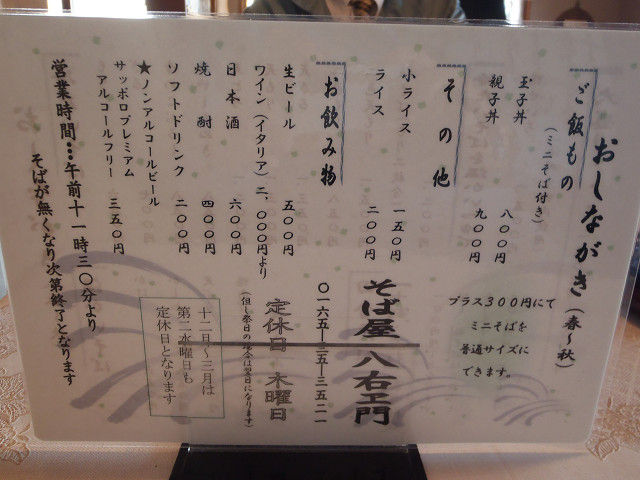 おしながき（春～秋）
ご飯もの
（ミニそば付き）
玉子丼 八〇〇円
親子丼 九〇〇円
プラス300円にて
ミニそばを
普通サイズに
できます。
その他
小ライス 一五〇円
ライス 二〇〇円
お飲み物
生ビール 五〇〇円
ワイン（イタリア）二、〇〇〇円より
日本酒 六〇〇円
焼酎 四〇〇円
ソフトドリンク 二〇〇円
★ノンアルコールビール
サッポロプレミアム
アルコールフリー 三五〇円
営業時間…午前十一時三〇分より
そばが無くなり次第終了となります
そば屋 八右ヱ門
〇一六五―二五―三五二一
定休日 木曜日
（但し祭日の場合は翌日になります）
十二月～三月は
第二水曜日も
定休日となります